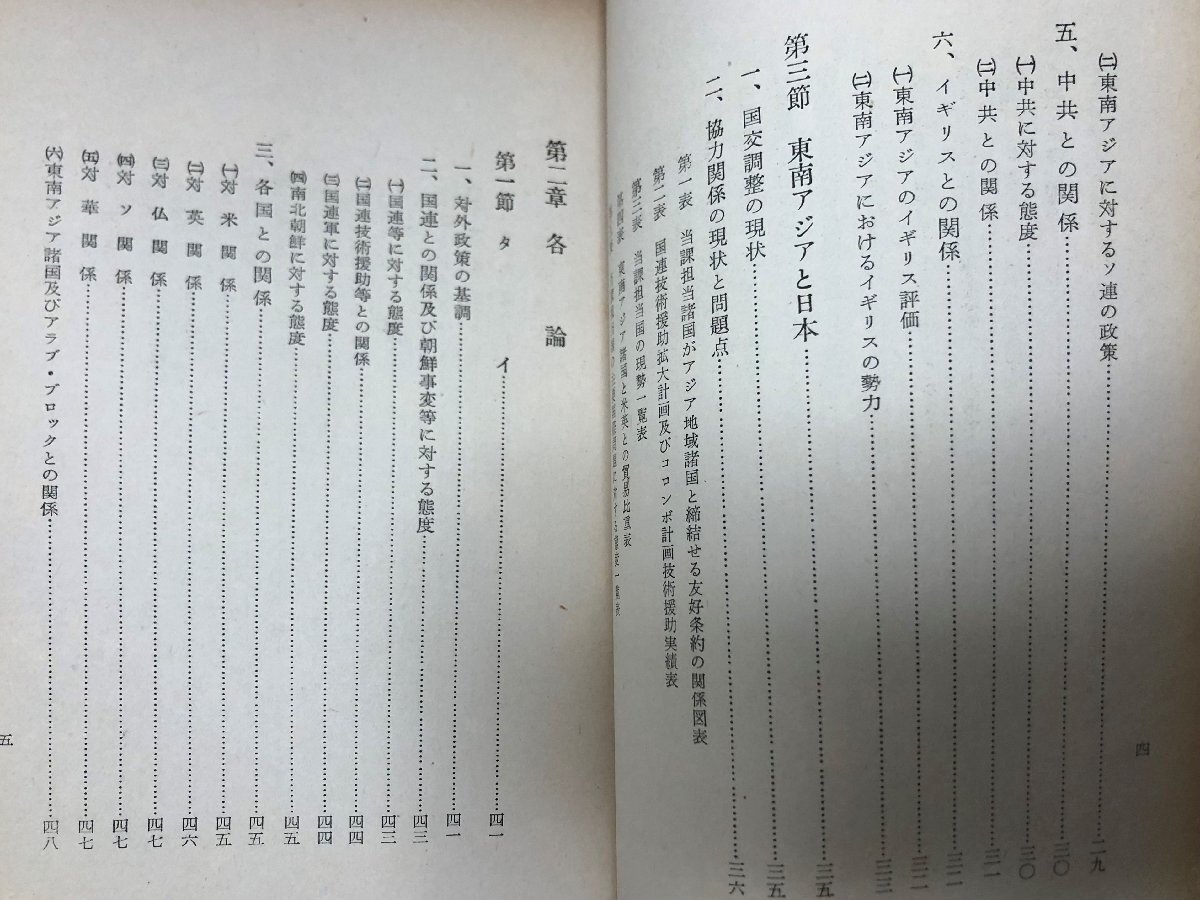 ㈡東南アジアに対するソ連の政策……二九
五、中共との関係……三〇
㈠中共に対する態度……三〇
㈡中共との関係……三一
六、イギリスとの関係……三二
㈠東南アジアのイギリス評価……三二
㈡東南アジアにおけるイギリスの勢力……三三
第三節 東南アジアと日本……三五
一、国交調整の現状……三五
二、協力関係の現状と問題点……三六
第一表 当課担当諸国がアジア地域諸国と締結せる友好条約の関係図表
第二表 国連技術援助拡大計画及びコロンボ計画技術援助実績表
第三表 当課担当国の現勢一覧表
第四表 東南アジア諸国と米英との貿易比重表
四
第二章 各論
第一節 タイ……四一
一、対外政策の基調……四一
二、国連との関係及び朝鮮事変等に対する態度……四三
㈠国連等に対する態度……四三
㈡国連技術援助等との関係……四四
㈢国連軍に対する態度……四四
㈣南北朝鮮に対する態度……四五
三、各国との関係……四五
㈠対米関係……四五
㈡対英関係……四六
㈢対仏関係……四七
㈣対ソ関係……四七
㈤対華関係……四七
㈥東南アジア諸国及びアラブ・ブロックとの関係……四八
五